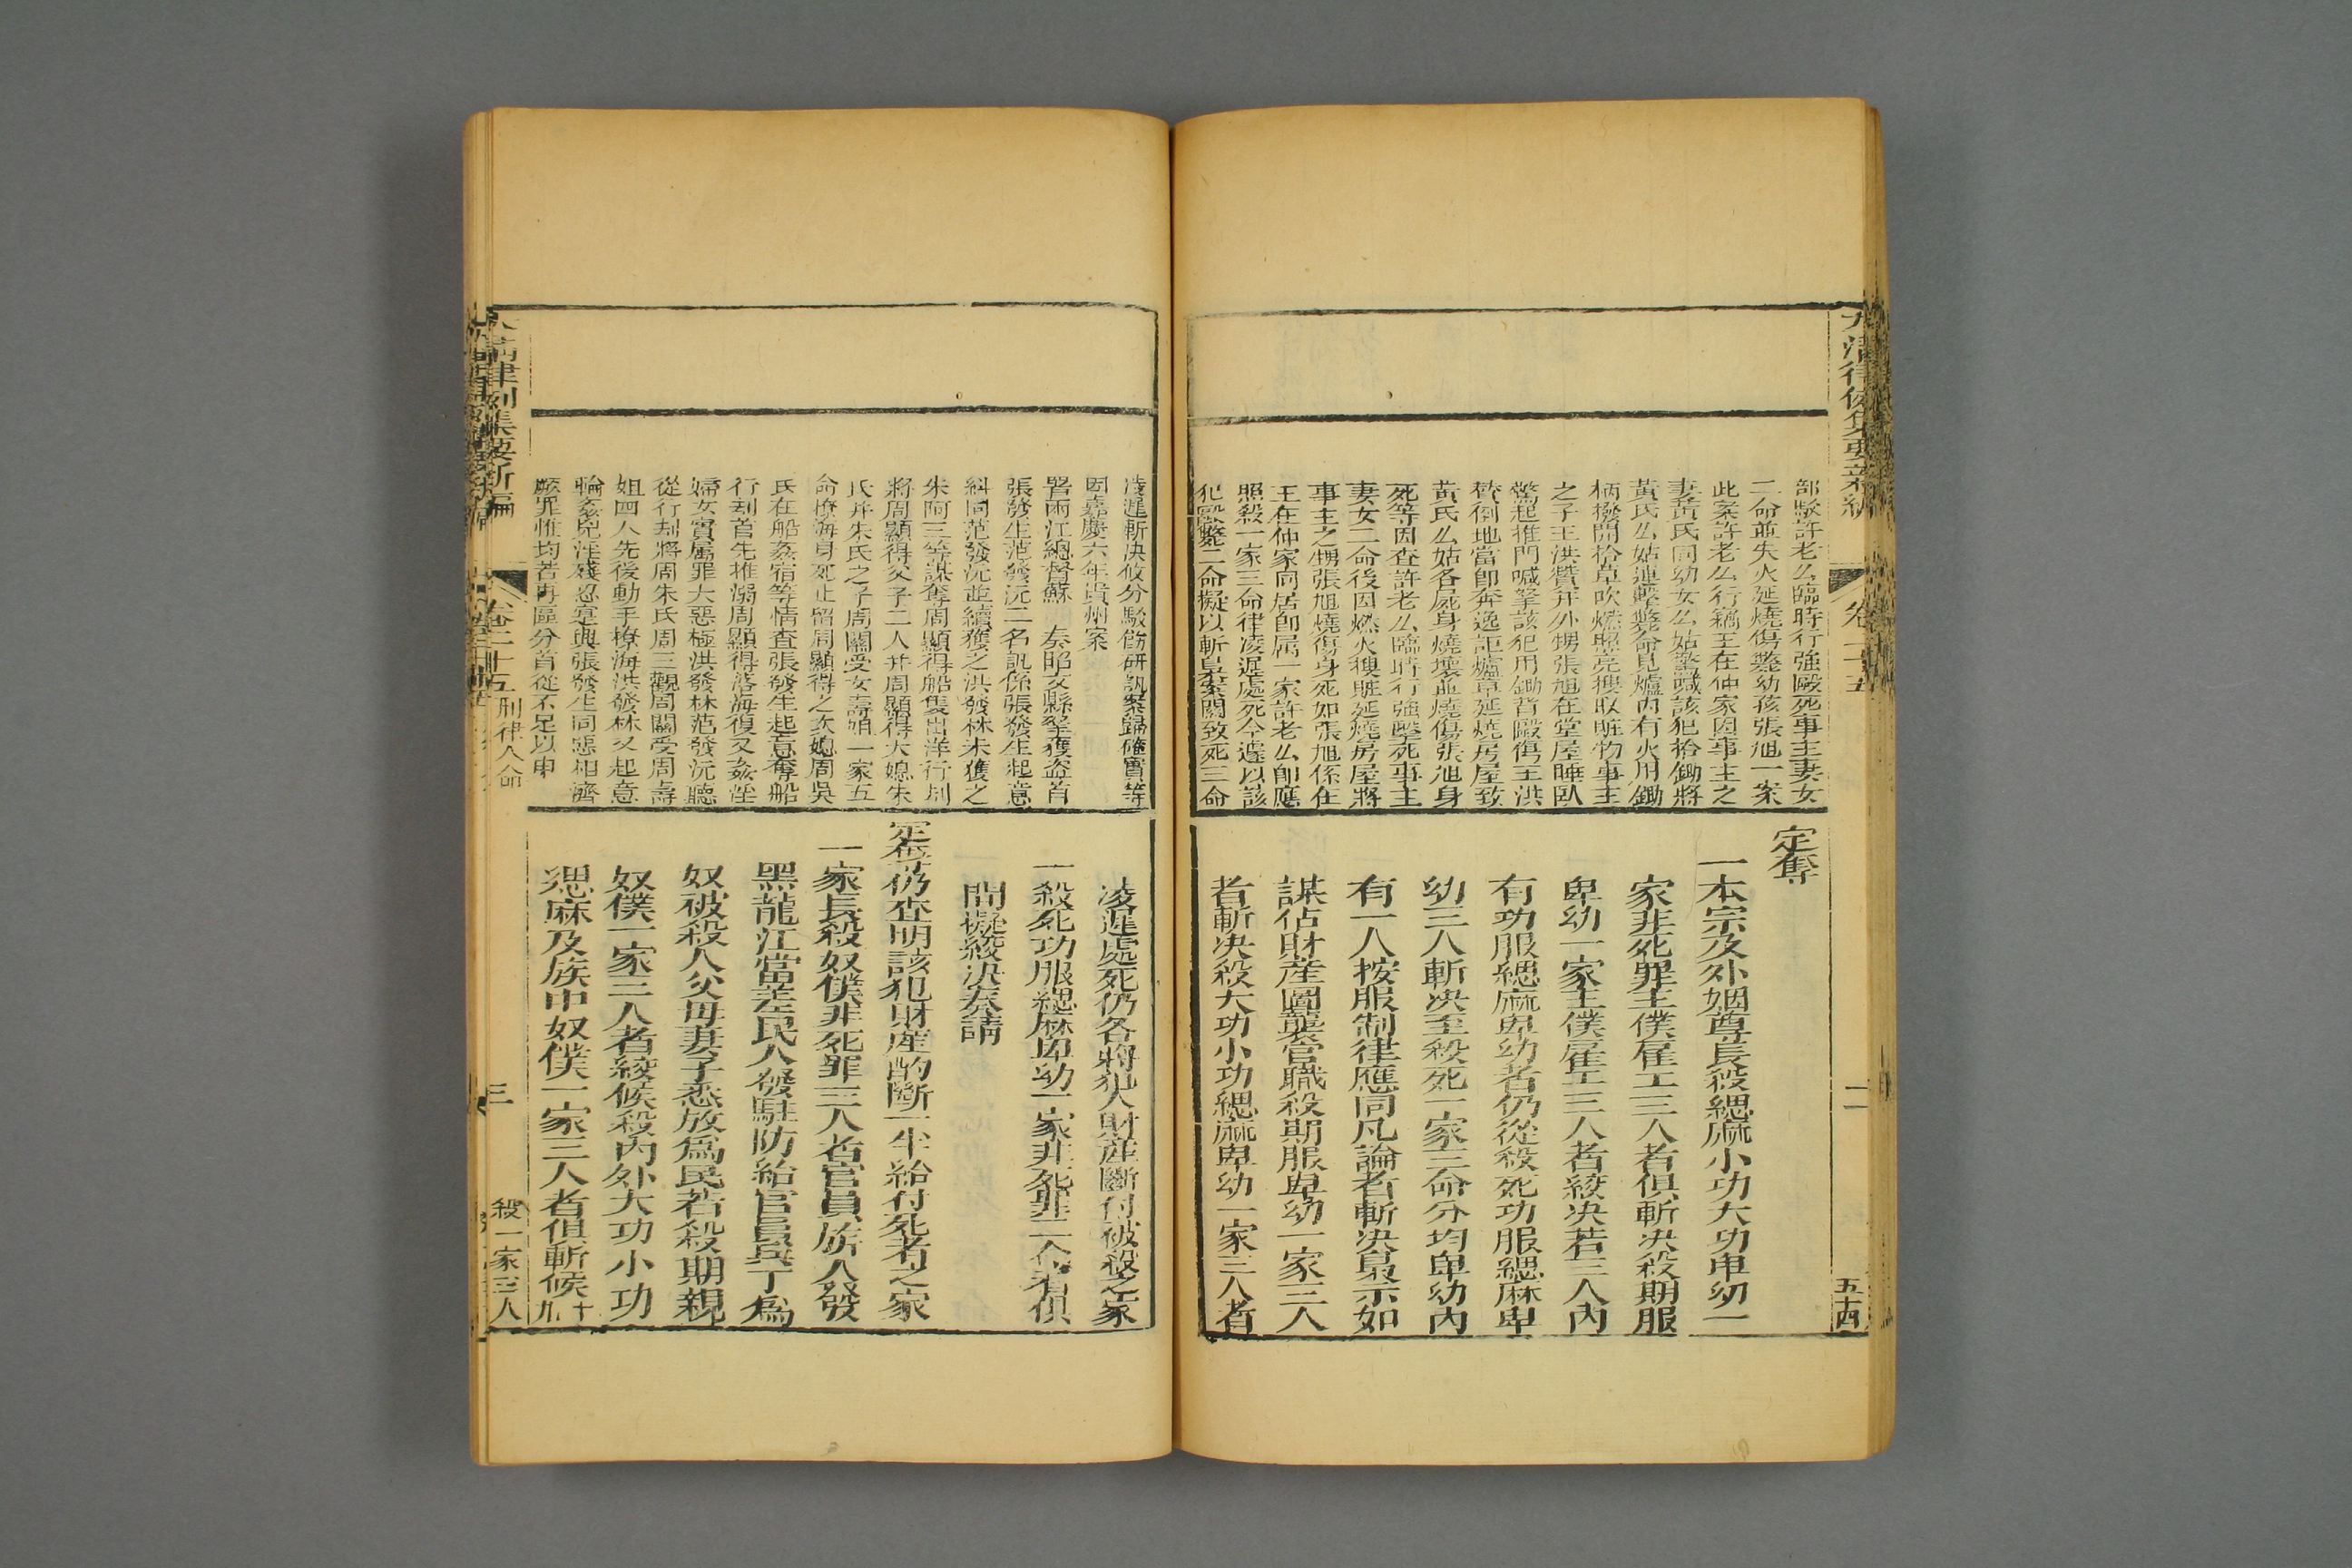 大清律例集要新編
卷二十五
二
五十四
部駁許老么臨時行強毆死事主妻女
二命並失火延燒傷斃幼孩張旭一案
此案許老么行竊王在仲家因事主之
妻黃氏同幼女么姑驚喊該犯拾鋤將
黃氏么姑連擊斃命見爐內有火用鋤
柄撥開拾草吹燃照亮搜取贓物事主
之子王洪贊并外甥張旭在堂屋睡臥
驚起推門喊拏該犯用鋤背毆傷王洪
贊倒地當即奔逸詎爐草延燒房屋致
黃氏么姑各屍身燒壞並燒傷張旭身
死等因查許老么臨時行強毆死事主
妻女二命後因燃火搜贓延燒房屋將
事主之甥張旭燒傷身死如張旭係住
王在仲家同居即屬一家許老么即應
照殺一家三命律凌遲處死今遽以該
犯毆斃二命擬以斬梟案關致死三命
定奪
一本宗及外姻尊長殺緦麻小功大功卑幼一
家非死罪主僕雇工三人者俱斬決殺期服
卑幼一家主僕雇工三人者絞決若三人內
有功服緦麻卑幼者仍從殺死功服緦麻卑
幼三人斬決至殺死一家三命分均卑幼內
有一人按服制律應同凡論者斬決梟示如
謀佔財產圖襲官職殺期服卑幼一家三人
者斬決殺大功小功緦麻卑幼一家三人者
凌遲斬決攸分駁飭研訊案歸確實等
因嘉慶六年貴州案
署兩江總督蘇　奏昭文縣拏獲盜首
張發生范發沅二名訊係張發生起意
糾同范發沅並續獲之洪發林未獲之
朱阿三等謀奪周顯得船隻出洋行刦
將周顯得父子二人并周顯得大媳朱
氏并朱氏之子周關受女壽姐一家五
命撩海身死止留周顯得之次媳周吳
氏在船姦宿等情查張發生起意奪船
行刦首先推溺周顯得落海復又姦淫
婦女實屬罪大惡極洪發林范發沅聽
從行刦將周朱氏周三觀周關受周壽
姐四人先後動手撩海洪發林又起意
輪姦兇淫殘忍寔與張發生同惡相濟
厥罪惟均若再區分首從不足以申
凌遲處死仍各將犯人財產斷付被殺之家
一殺死功服緦麻卑幼一家非死罪二人者俱
問擬絞決奏請
定奪仍查明該犯財產酌斷一半給付死者之家
一家長殺奴僕非死罪三人者官員旂人發
黑龍江當差民人發駐防給官員兵丁為
奴被殺人父母妻子悉放為民若殺期親
奴僕一家三人者絞候殺內外大功小功
緦麻及族中奴僕一家三人者俱斬候 十九
大清律例集要新編
卷二十五
刑律人命
三
殺一家三人